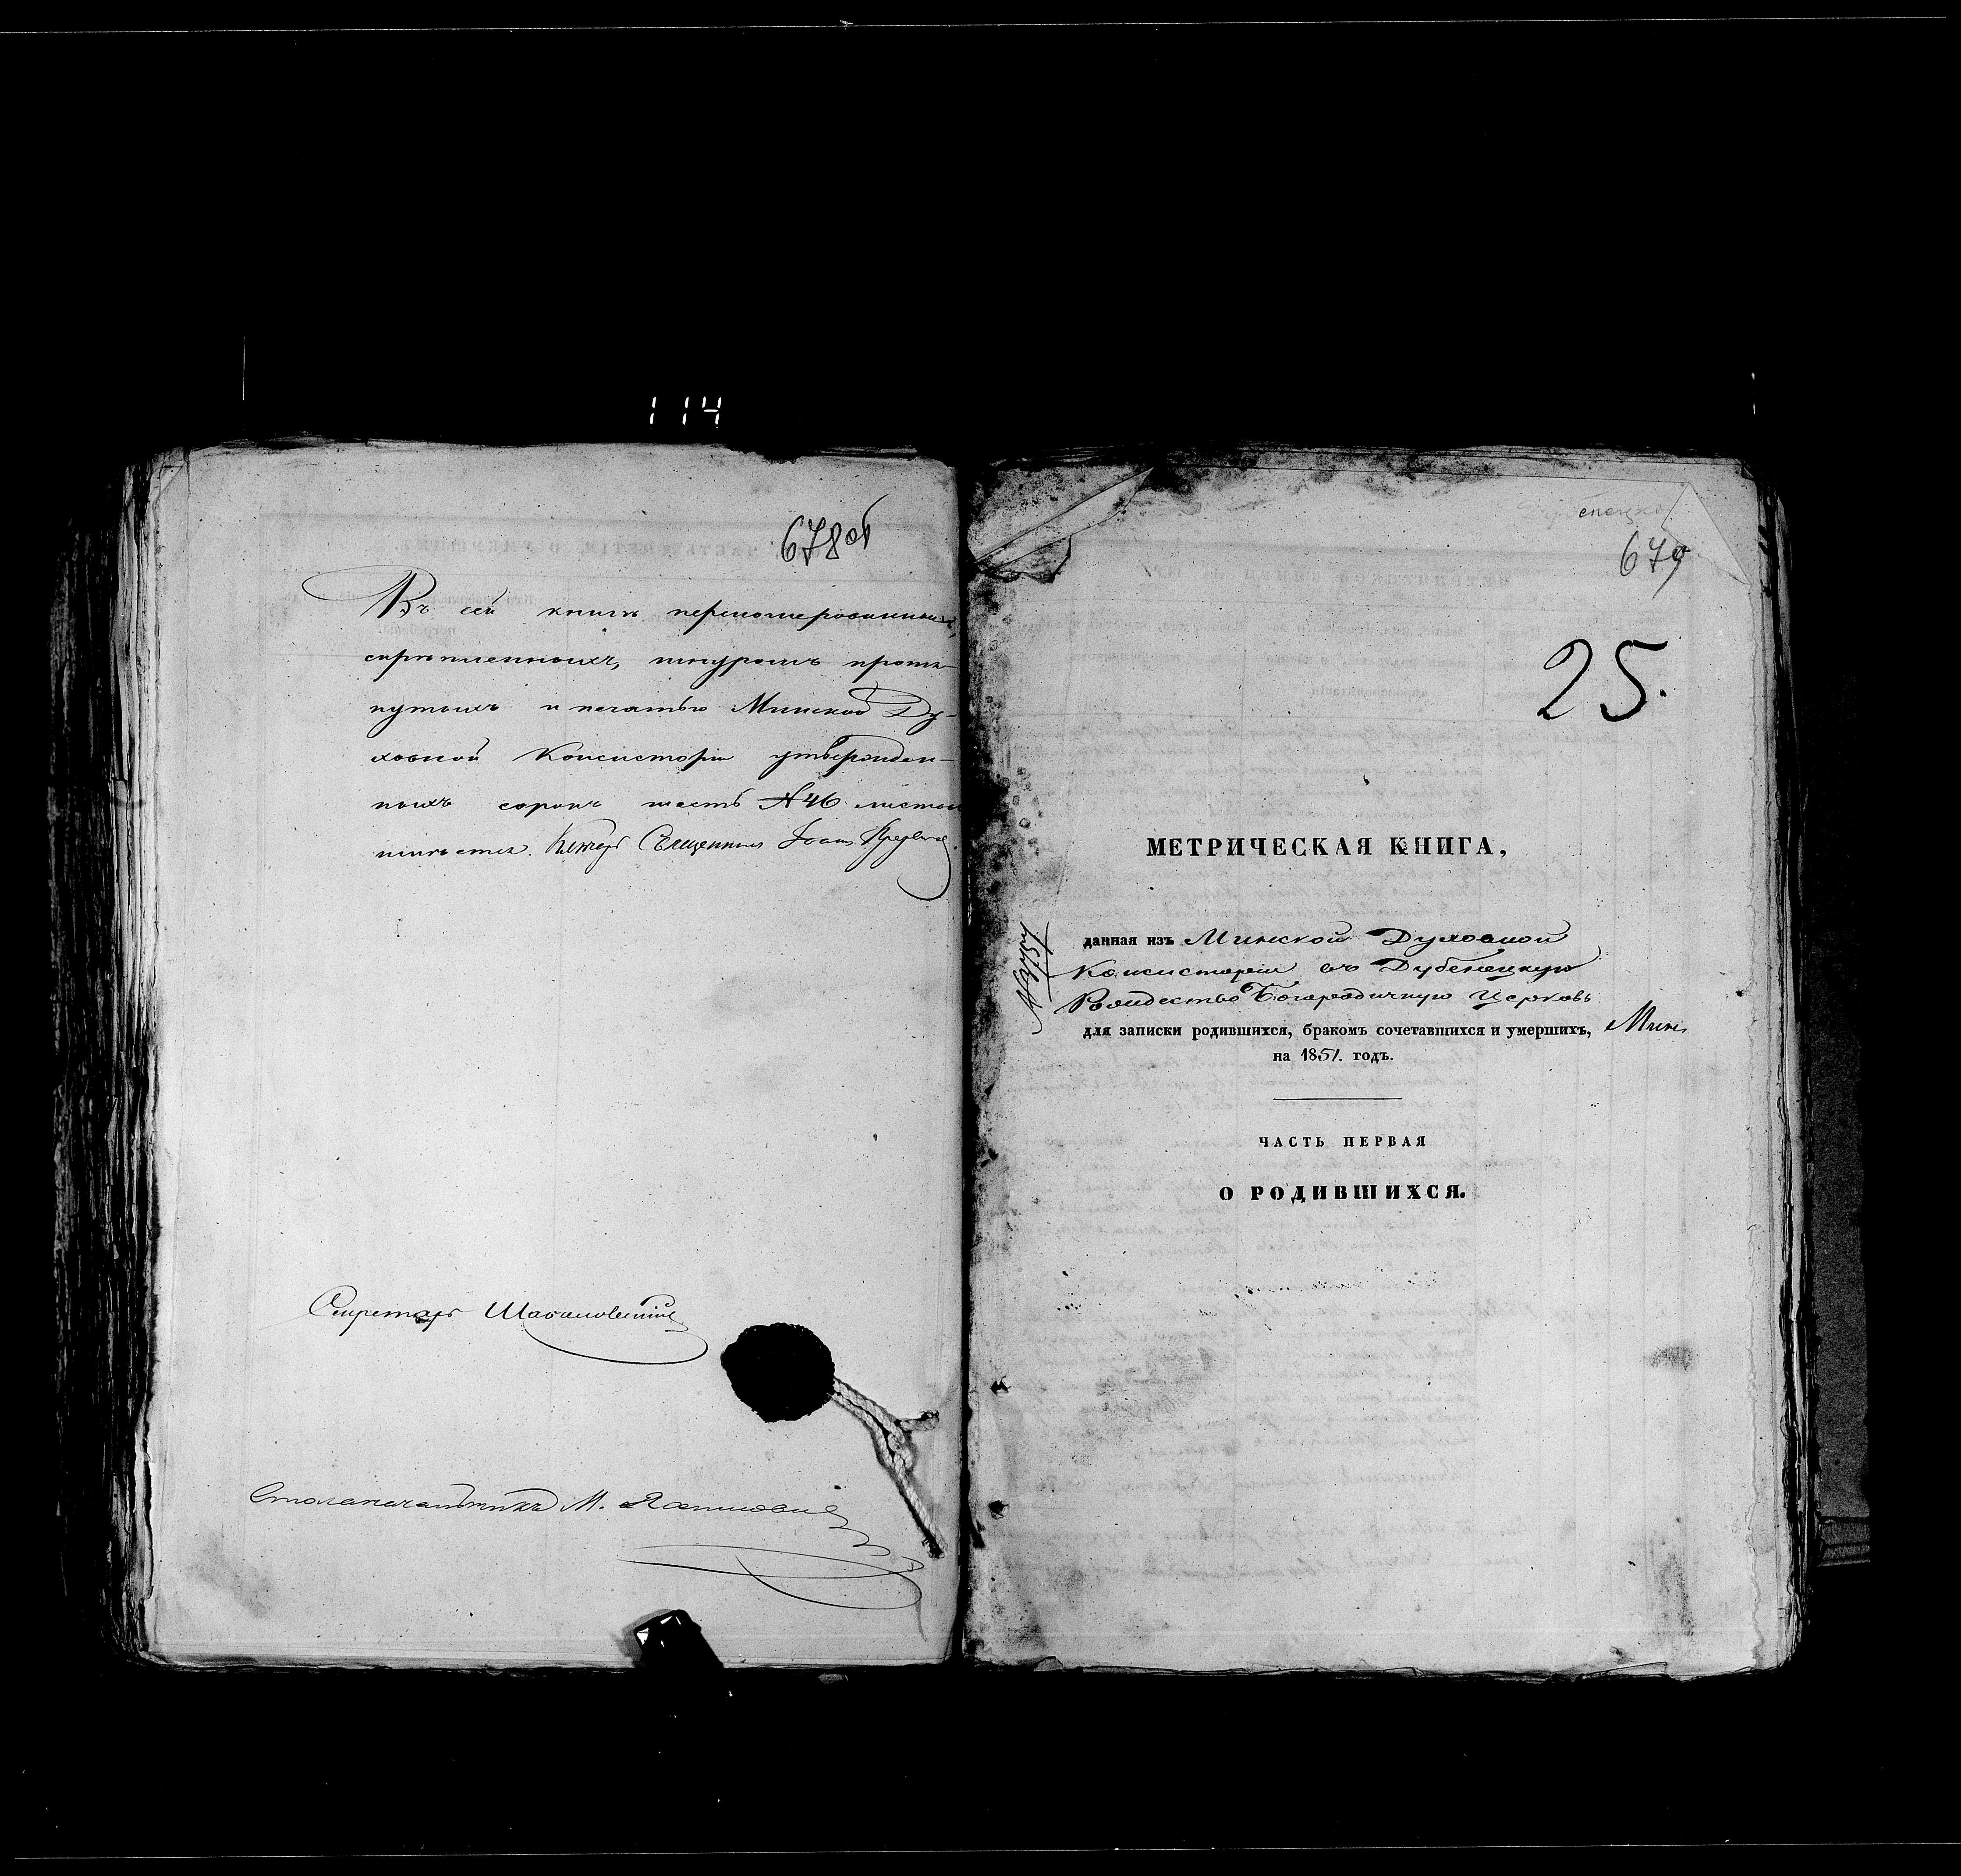 114
678 об
Въ сей книгѣ переномерованныхъ,
скрѣпленныхъ, шнуромъ протя-
нутыхъ и печатью Минской Ду-
ховной Консисторіи утвержден-
ныхъ сорокъ шесть №46 листовъ
имѣется. Священникъ Іоаннъ
Секретарь
Столоначальникъ М.
679
25.
МЕТРИЧЕСКАЯ КНИГА,
данная изъ Минской Духовной
Консисторіи въ Дубенецкую
Рождество Богородичную Церковь
для записки родившихся, бракомъ сочетавшихся и умершихъ, Мин.
на 1851. годъ.
ЧАСТЬ ПЕРВАЯ
О РОДИВШИХСЯ.